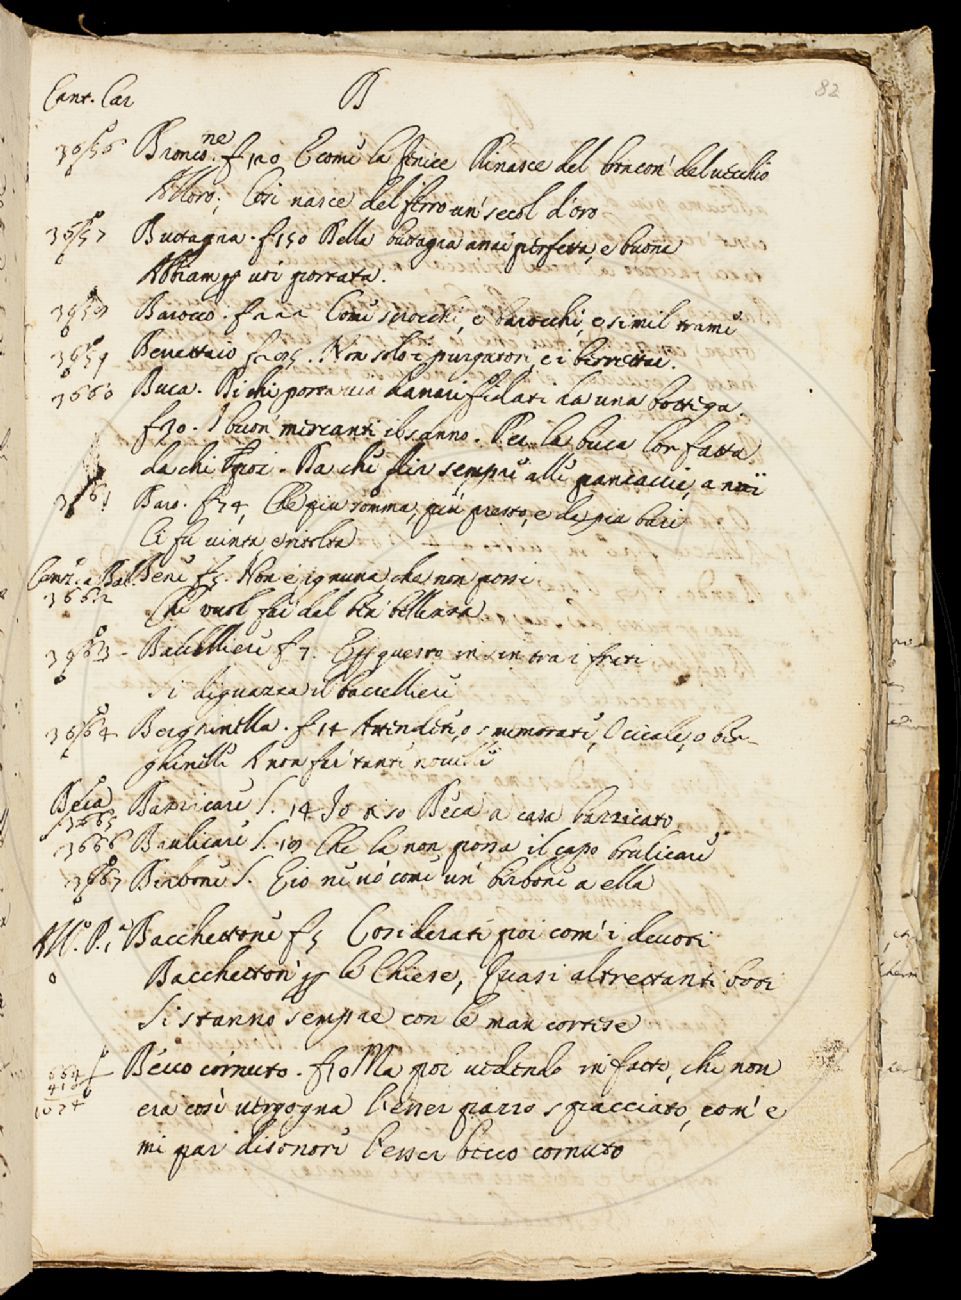 Cant. Car B 82
3656 Broncone. f 120 E come la fenice Rinasce del broncon' del vecchio
Alloro; Cosi nasce del ferro un' secol d'oro
3657 Buttagna. f 150 Bella buttagna assai perfetta, e buona
Abbiam qui portata.
3658 Barocco. f Come scrocchi, e barocchi, e simil trame
3659 Berrettaio f . Non solo i purgatori, e i berrettai.
3660 Buca. Di chi porta danari fidati da una bottega.
f 70. I buon' mercanti il sanno. Per la buca lor fatta
da chi poi. Sa che stia sempre alle pancaccie, a noi
3661 Baro. f 74, Che più romma, più presto, e da più bari
Ci fu vinta e tolta
Canz. a Bal. Bene f 5. Non è ignuna che non possi
3662 Chi vuol far del ben bellezza
3663 Baccelliere f 7. E questo insin tra i frati
Si diguazza il baccelliere
3664 Berghinella. f 14 Avvinditi, o smemorati, O cicale, o ber-
ghinelle A non far tante novelle
Beca
3665 Barricare S. 14 Io so Beca a casa barricato
3666 Brulicare S. 19 Che la non possa il capo brulicare
3667 Birbone S. Ero ne vo come un' birbone a ella
All. P. 1ª Bacchettone f 5 Considerati poi com' i devoti
0 Bacchetton' per le Chiese, Quasi altrettanti boti
Si stanno sempre con le man cortese
664
410
1074 Becco cornuto. f 70 Ma poi vedendo in fatto, che non
era così vergogna l'esser pazzo spacciato, com' e
mi par disonore l'esser becco cornuto